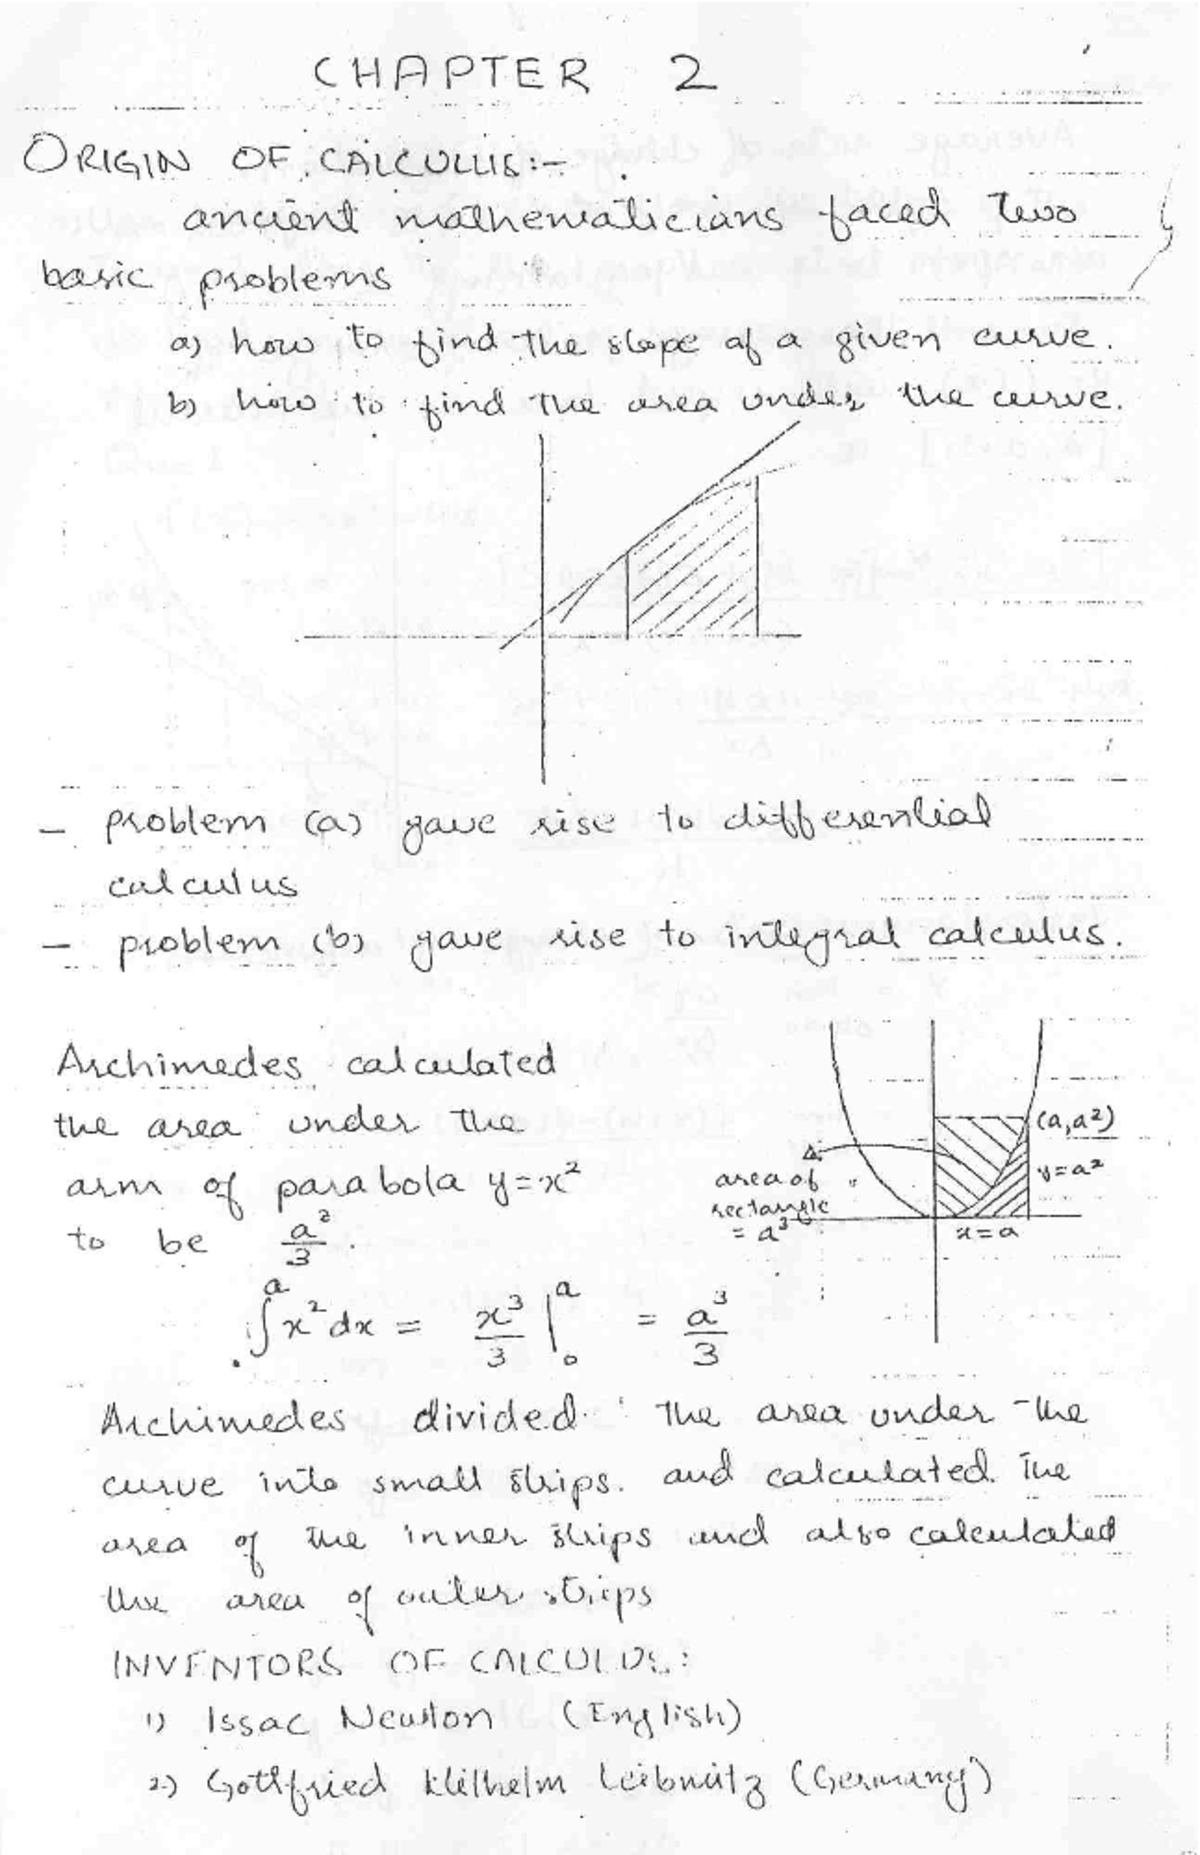 CHAPTER 2
ORIGIN OF CALCULUS:-
ancient mathematicians faced two
basic problems
a) how to find the slope of a given curve.
b) how to find the area under the curve.
- problem (a) gave rise to differential
calculus
- problem (b) gave rise to integral calculus.
Archimedes calculated
the area under the
arm of parabola y=x²
to be a²/3.
(a,a²)
y=a²
area of
rectangle
= a³
x=a
∫x²dx = x³/3 |₀ᵃ = a³/3
Archimedes divided the area under the
curve into small strips. and calculated the
area of the inner strips and also calculated
the area of outer strips
INVENTORS OF CALCULUS:
1) Issac Newton (English)
2) Gottfried Wilhelm Leibnitz (Germany)